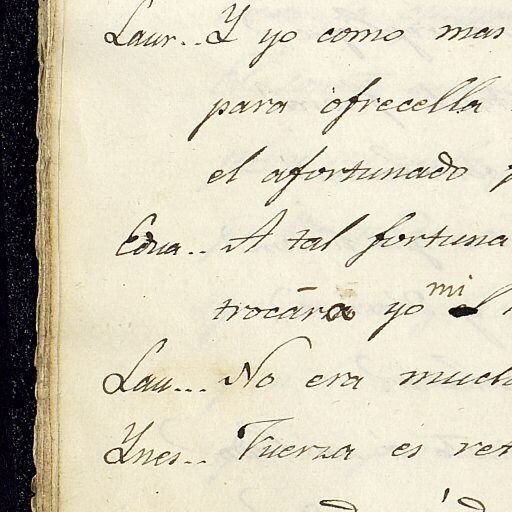 Laur.. Y yo como mas
para ofrecella
el afortunado
Edua.. A tal fortuna
trocára yo mi
Lau... No era much
Ynes.. Fuerza es ret